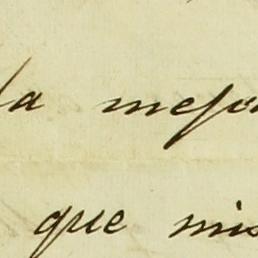 la mejor
que mis